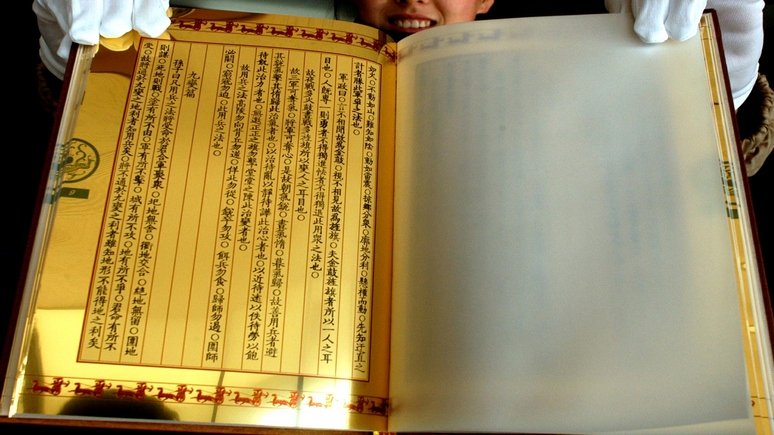 如火○不動如山○難知如陰○動如雷震○掠鄉分衆○廓地分利○懸權而動○先知迂直之
計者勝此軍爭之法也○
軍政曰○言不相聞故爲金鼓○視不相見故爲旌旗○夫金鼓旌旗者所以一人之耳
目也○人旣專一則勇者不得獨進怯者不得獨退此用衆之法也○
故夜戰多火鼓晝戰多旌旗所以變人之耳目也○
故三軍可奪氣○將軍可奪心○是故朝氣銳○晝氣惰○暮氣歸○故善用兵者避
其銳氣擊其惰歸此治氣者也○以治待亂以靜待譁此治心者也○以近待遠以佚待勞以飽
待飢此治力者也○無邀正正之旗勿擊堂堂之陳此治變者也○
故用兵之法高陵勿向背丘勿逆○佯北勿從○銳卒勿攻○餌兵勿食○歸師勿遏○圍師
必闕○窮寇勿迫○此用兵之法也○
九變篇
孫子曰凡用兵之法將受命於君合軍聚衆○圮地無舍○衢地交合○絕地無留○圍地
則謀○死地則戰○塗有所不由○軍有所不擊○城有所不攻○地有所不爭○君命有所不
受○故將通於九變之地利者知用兵矣○將不通於九變之利者雖知地形不能得地之利矣